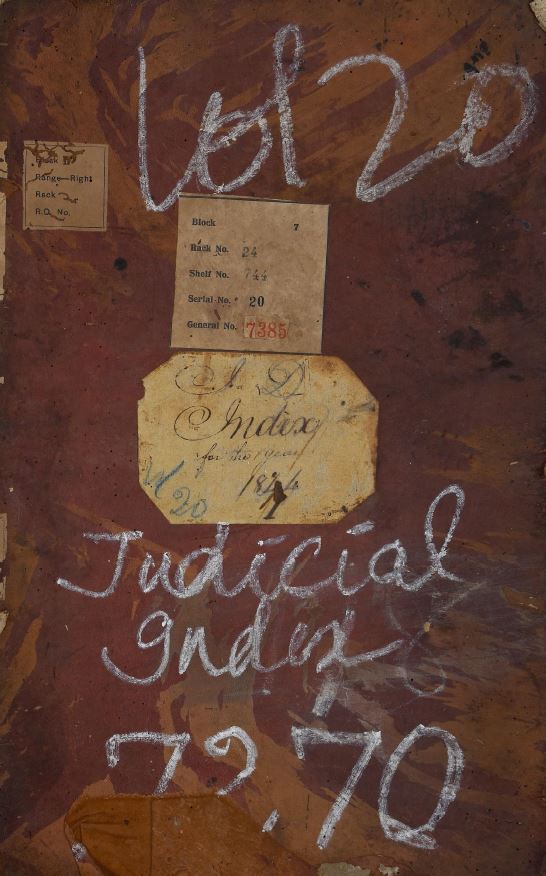 Vol 20
Block
Range Right
Rack
R.O. No.
Block 7
Rack No. 24
Shelf No. 744
Serial No. 20
General No. 7385
J. D.
Index
for the year
V
20
Judicial
Index
72,70